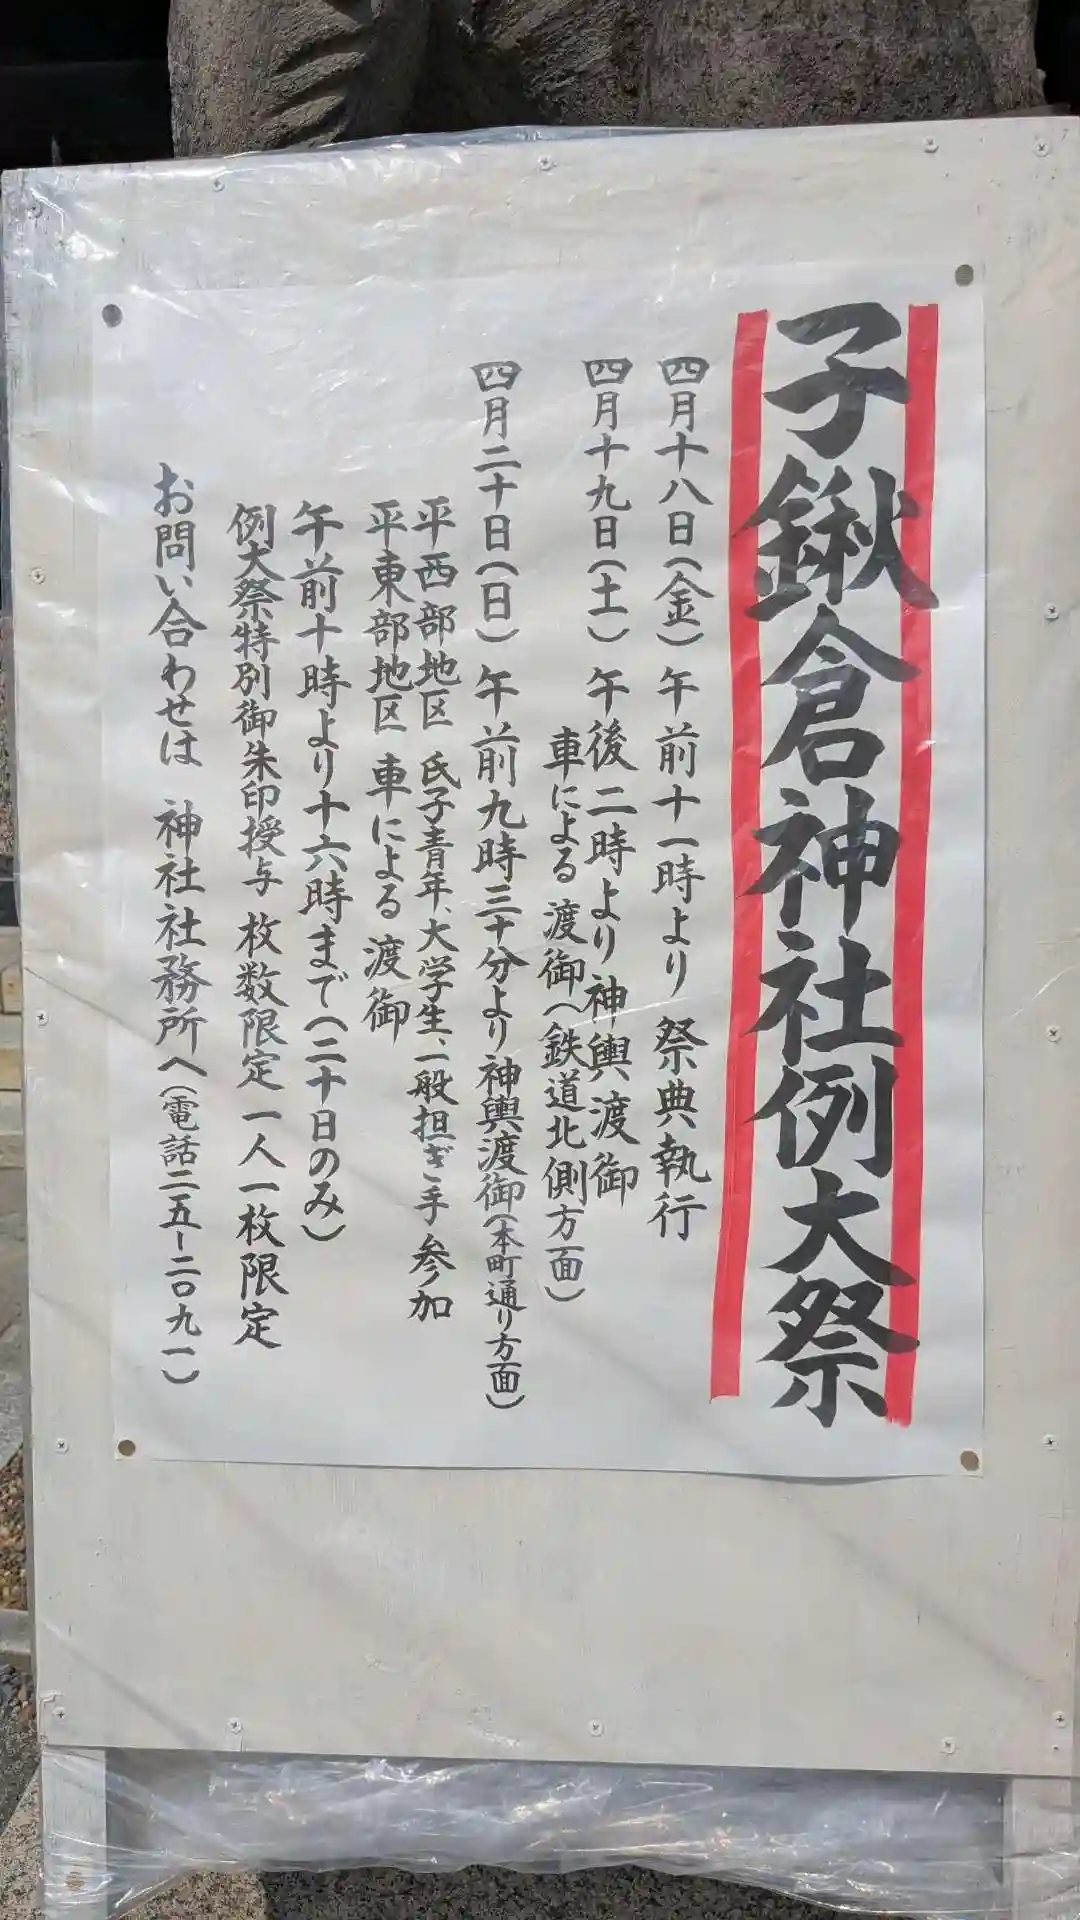 子鍬倉神社例大祭
四月十八日(金) 午前十一時より 祭典執行
四月十九日(土) 午後二時より神輿渡御
車による渡御(鉄道北側方面)
四月二十日(日) 午前九時三十分より神輿渡御(本町通り方面)
平西部地区 氏子青年、大学生、一般担ぎ手参加
平東部地区 車による渡御
午前十時より十六時まで(二十日のみ)
例大祭特別御朱印授与 枚数限定 一人一枚限定
お問い合わせは 神社社務所へ(電話二五ー二〇九一)